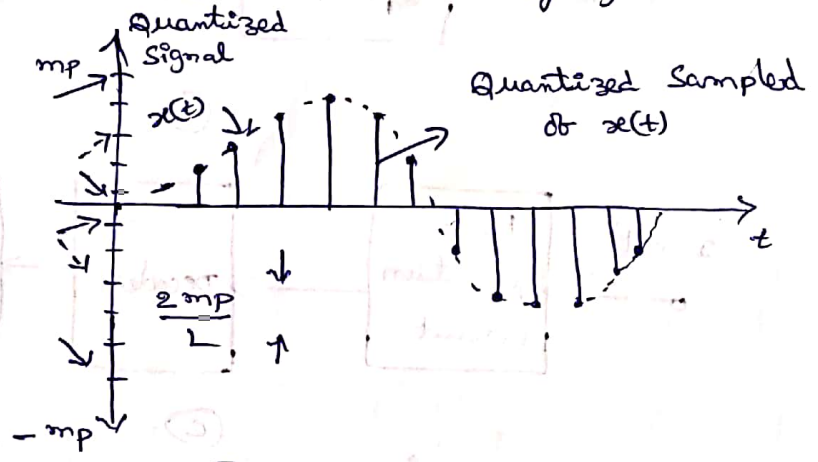 Quantized
Signal
mp
x(t)
Quantized Sampled
of x(t)
t
2mp
L
- mp